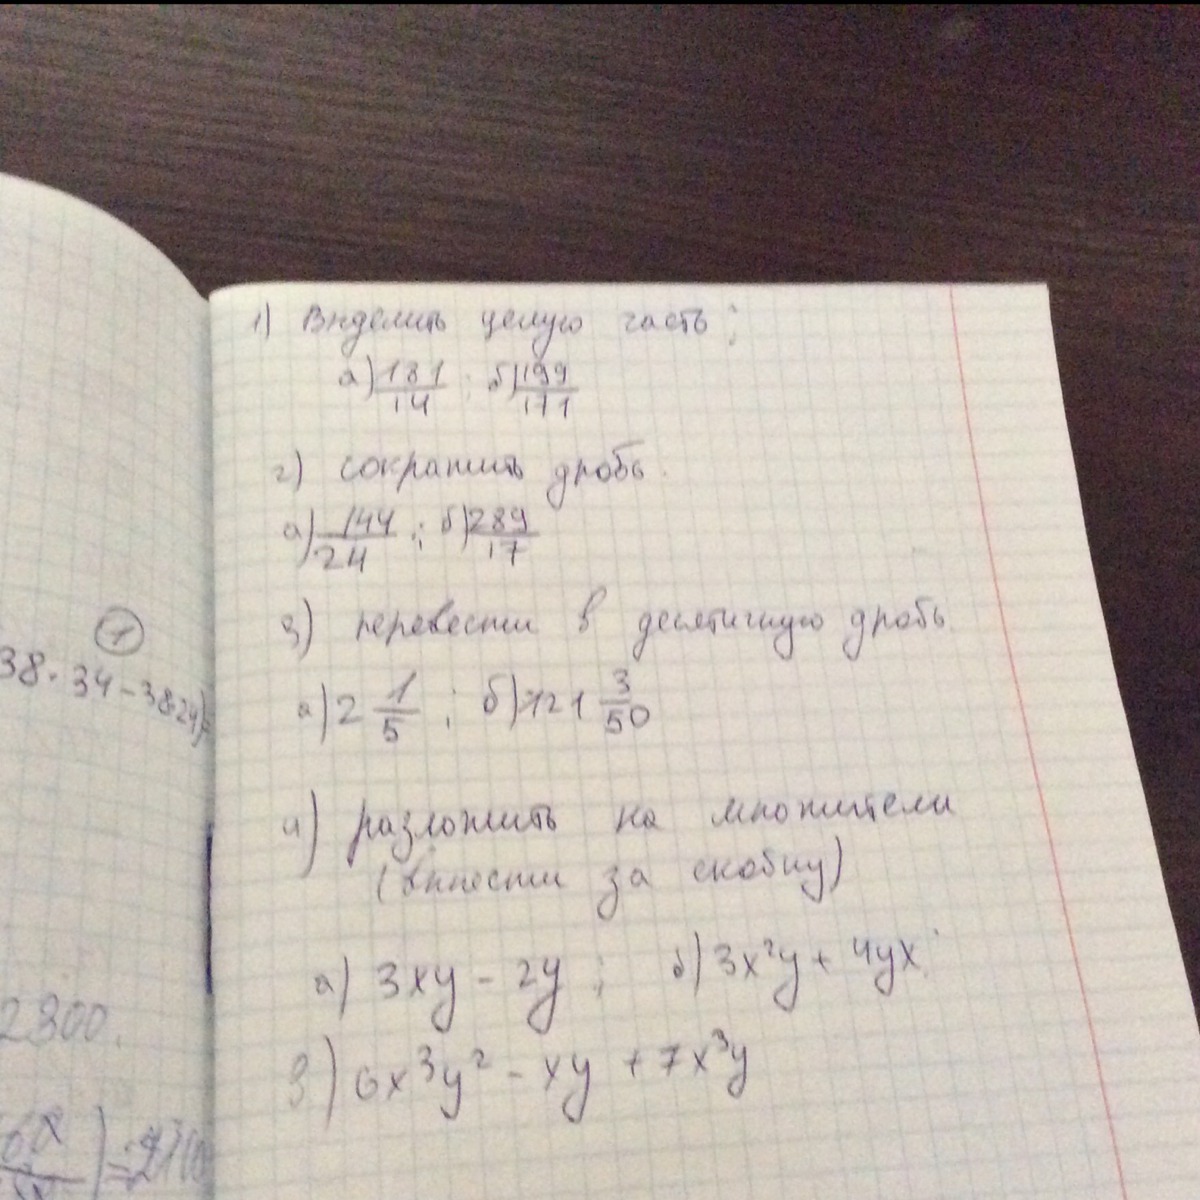 1) Выделить целую часть:
а) 181/14 ; б) 199/171
2) сократить дробь.
а) 144/24 ; б) 289/17
3) перевести в десятичную дробь.
а) 2 1/5 ; б) 121 3/50
4) разложить на множители
(вынести за скобку)
а) 3xy - 2y ; б) 3x²y + 4yx.
в) 6x³y² - xy + 7x³y
1
38·34-3824)=
2800.